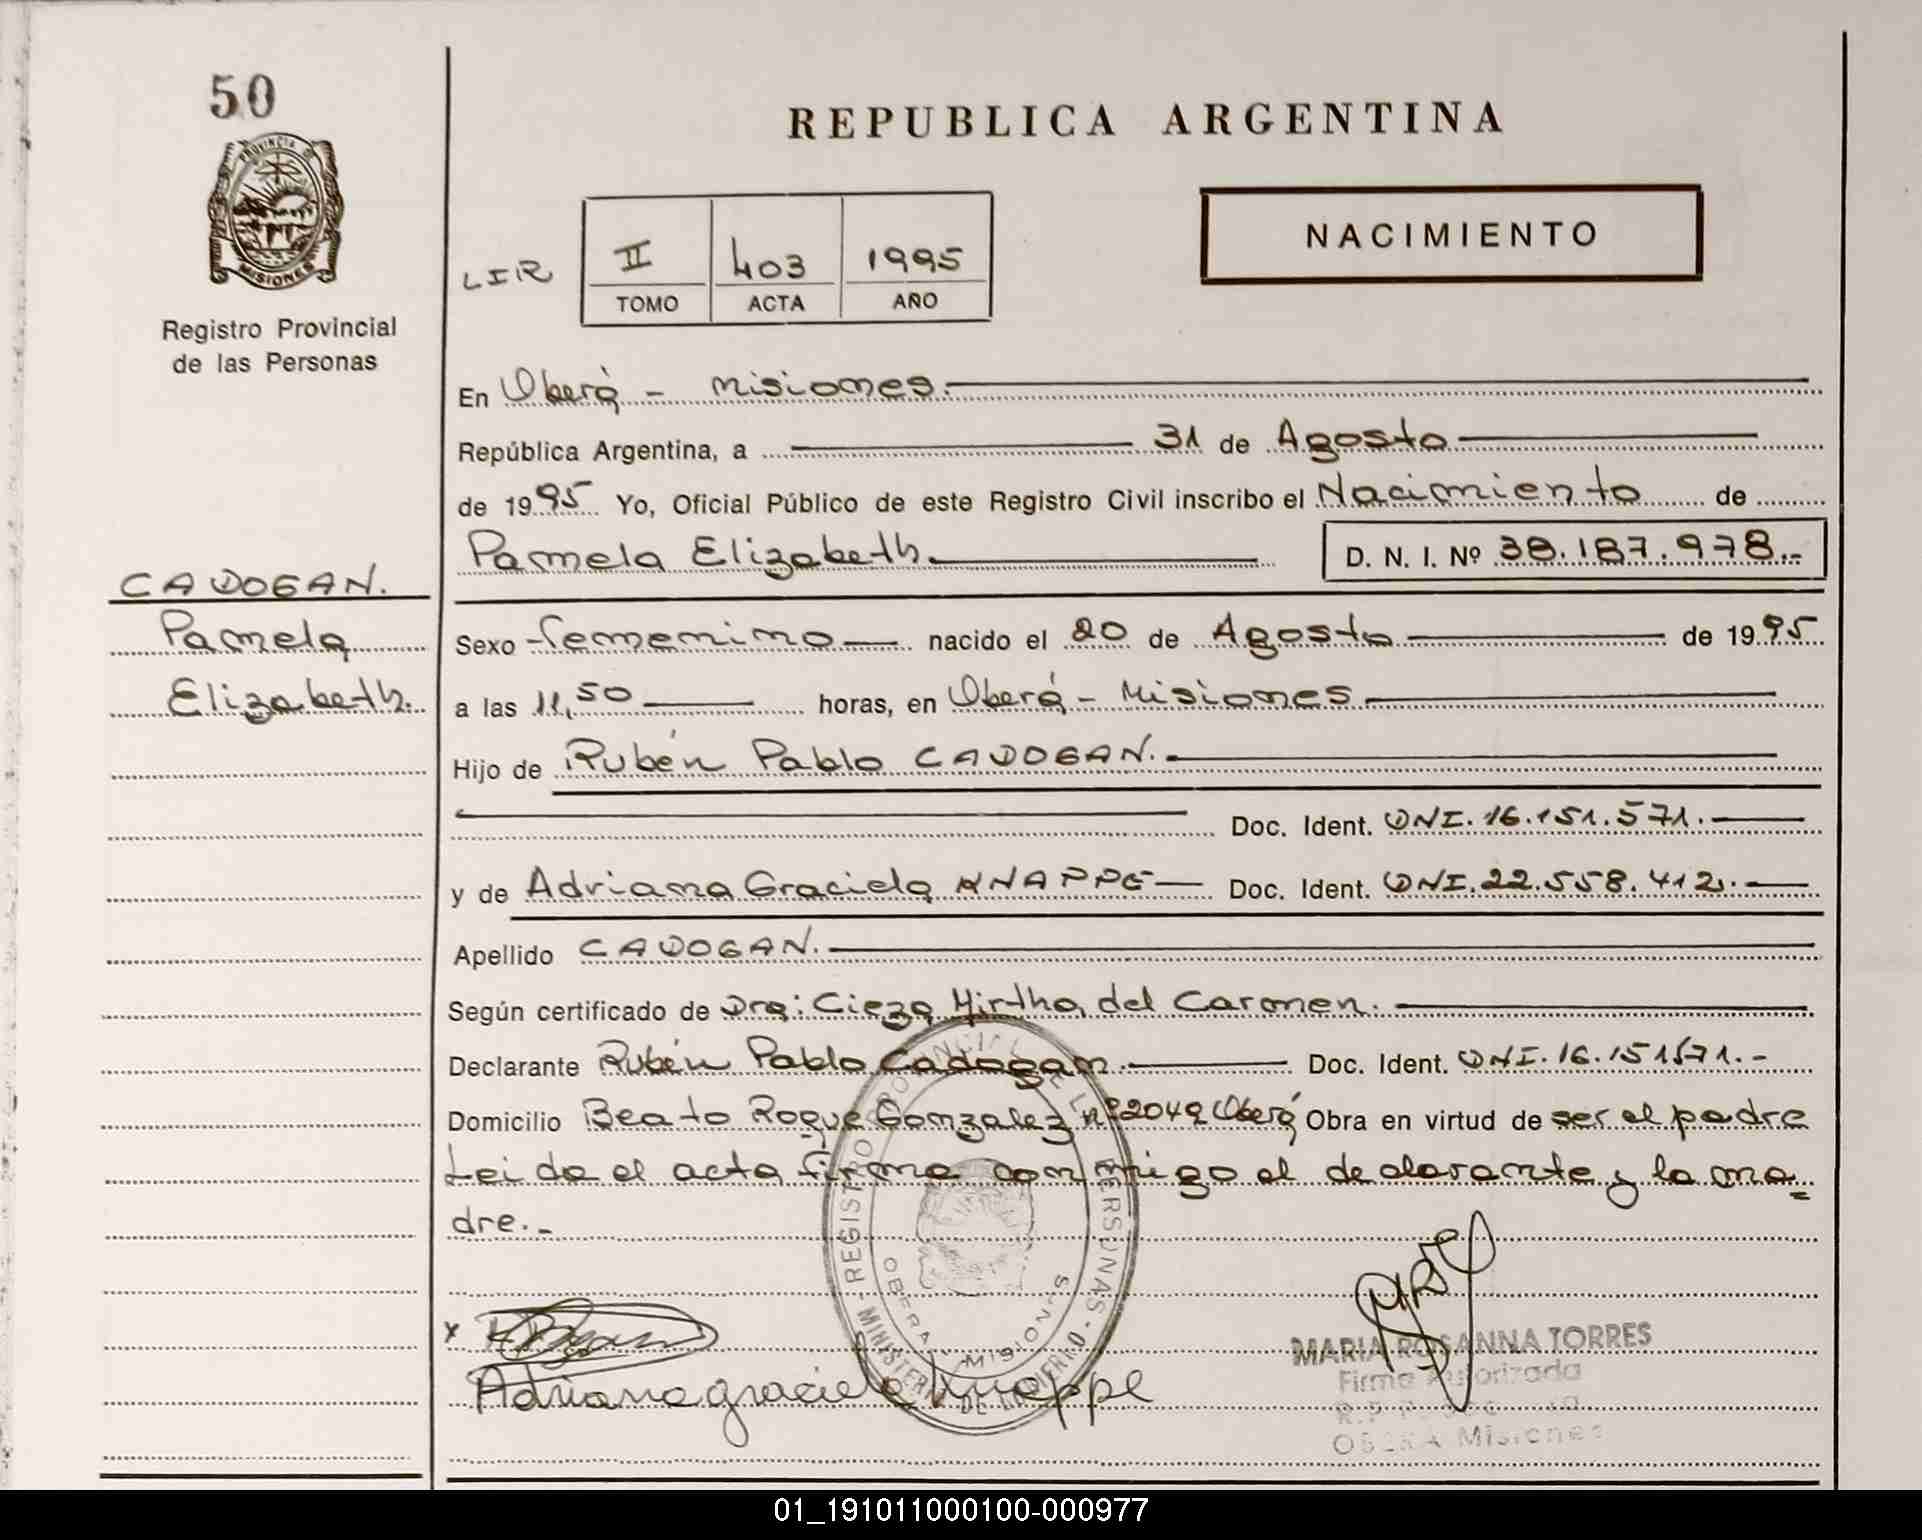 50
PROVINCIA DE
MISIONES
Registro Provincial
de las Personas
CADOGAN.
Pamela
Elizabeth.
REPUBLICA ARGENTINA
NACIMIENTO
LIR II 403 1995
TOMO ACTA AÑO
En Oberá - Misiones.
República Argentina, a 31 de Agosto
de 1995 Yo, Oficial Público de este Registro Civil inscribo el Nacimiento de
Pamela Elizabeth. D. N. I. Nº 38.187.978.-
Sexo femenino nacido el 20 de Agosto de 1995
a las 11,50 horas, en Oberá - Misiones
Hijo de Rubén Pablo CADOGAN.
Doc. Ident. DNI. 16.151.571.
y de Adriana Graciela KNAPPE Doc. Ident. DNI. 22.558.412.
Apellido CADOGAN.
Según certificado de Dra: Cieza Mirtha del Carmen.
Declarante Rubén Pablo Cadogan. Doc. Ident. DNI. 16.151571.-
Domicilio Beato Roque Gonzalez nº 2049 Oberá Obra en virtud de ser el padre
Leida el acta firma conmigo el declarante y la ma=
dre.-
REGISTRO PROVINCIAL DE LAS PERSONAS - MINISTERIO DE GOBIERNO
OBERA MISIONES
x
Adriana graciela Knappe
MARIA ROSANNA TORRES
Firma Autorizada
OBERA Misiones
01_191011000100-000977